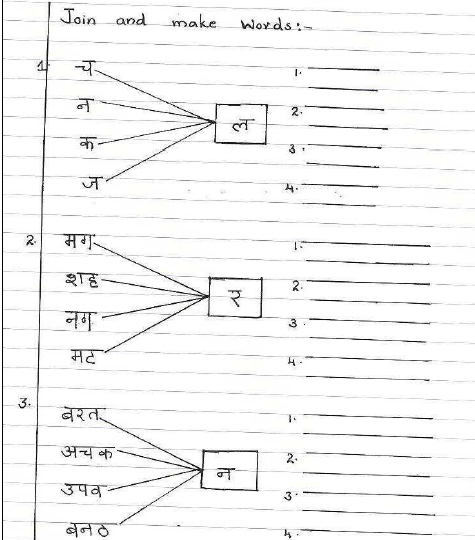 Join and make words:-
1. च 1.
न 2.
ल
क 3.
ज 4.
2. मग 1.
शह 2.
र
नग 3.
मट 4.
3. बरत 1.
अचक 2.
न
उपव 3.
बनठ 4.